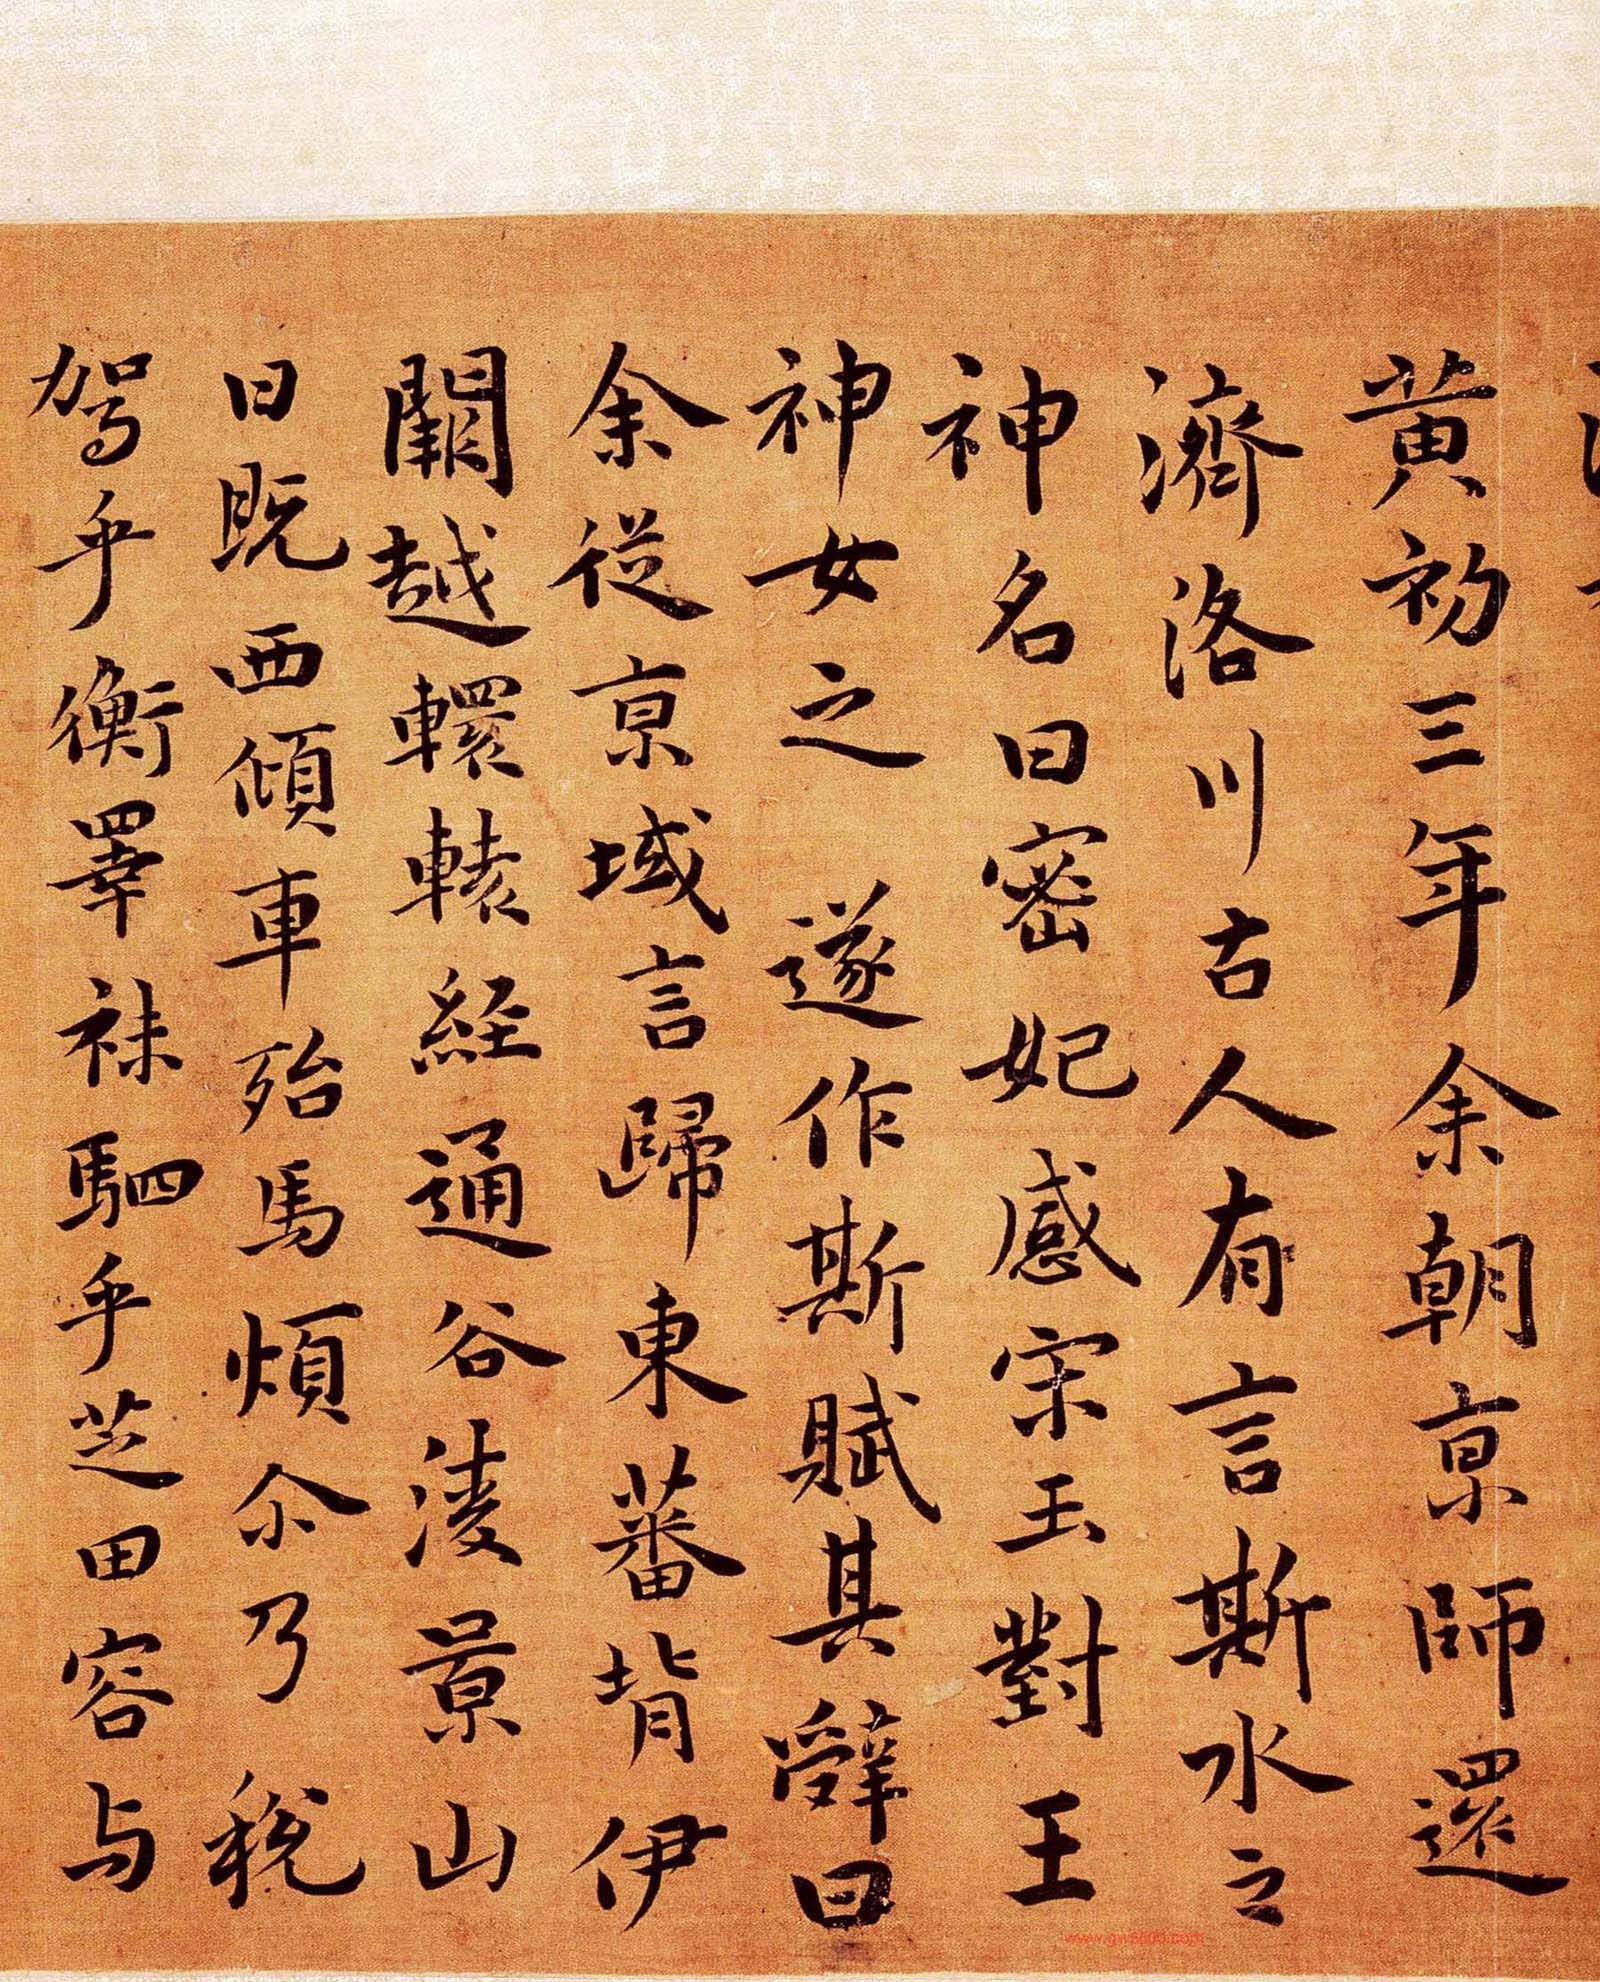 黄初三年余朝京師還
濟洛川古人有言斯水之
神名曰宓妃感宋玉對王
神女之遂作斯賦其辭曰
余從京域言歸東蕃背伊
闕越轘轅經通谷陵景山
日既西傾車殆馬煩尒乃稅
駕乎蘅睪袜駟乎芝田容与